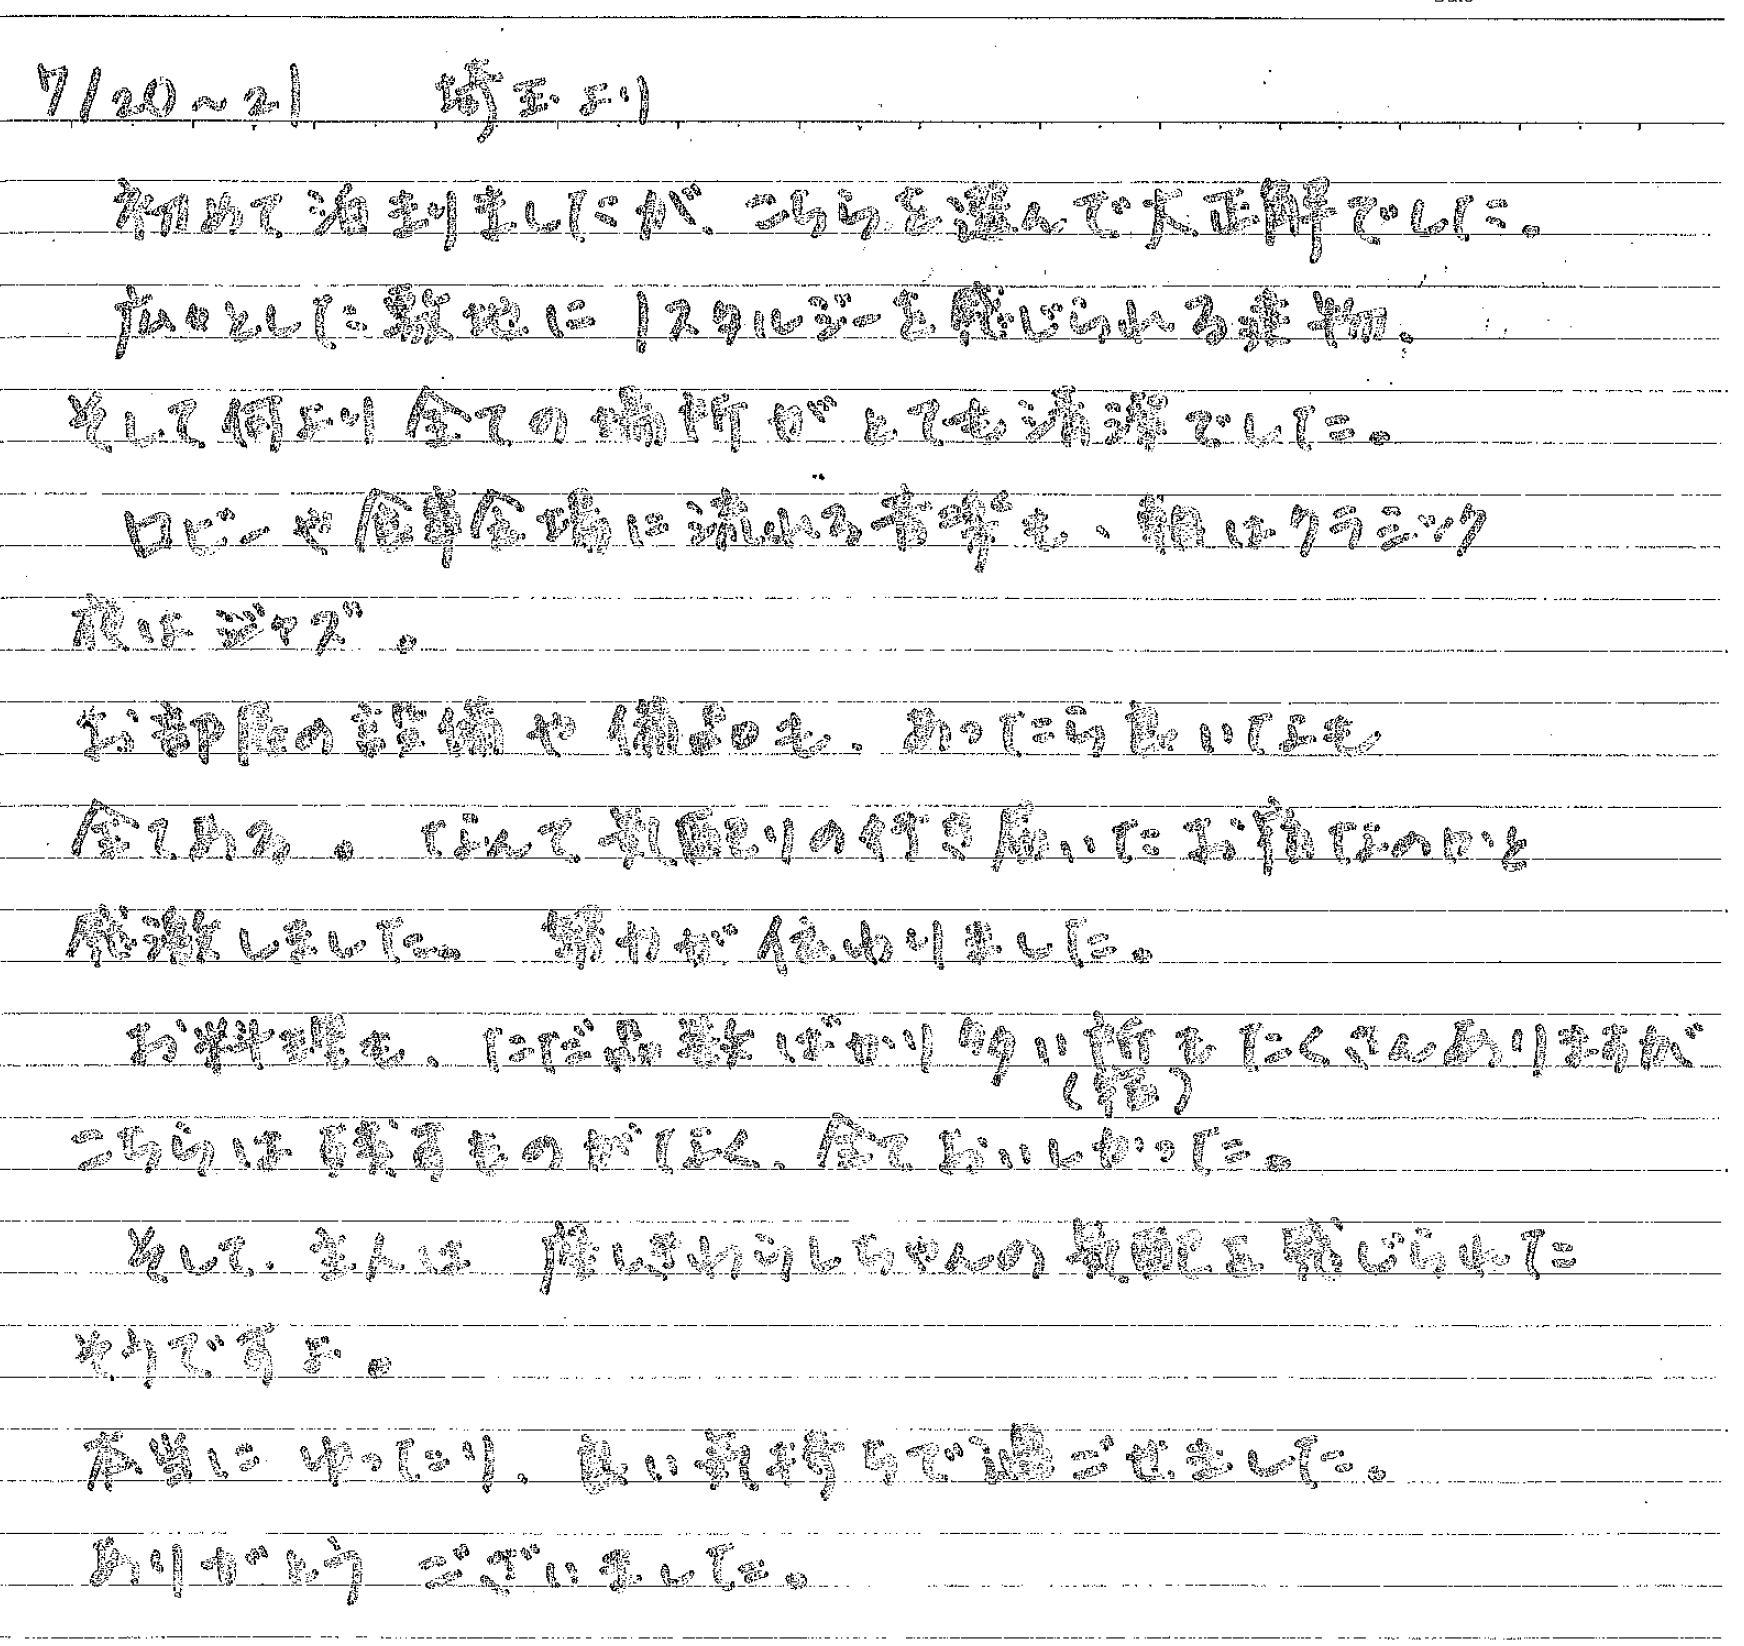 7/20〜21 埼玉より
初めて泊まりましたが、こちらを選んで大正解でした。
広々とした敷地にノスタルジーを感じられる建物、
そして何より全ての場所がとても清潔でした。
ロビーや食事会場に流れる音楽も、朝はクラシック
夜はジャズ。
お部屋の設備や備品も、あったら良いなも
全てある。なんて気配りの行き届いたお宿なのかと
感激しました。努力が伝わりました。
お料理も、ただ品数ばかり多い所もたくさんありますが
(宿)
こちらは残すものがなく、全ておいしかった。
そして、主人は座しきわらしちゃんの気配を感じられた
そうですよ。
本当にゆったり、良い気持ちで過ごせました。
ありがとうございました。